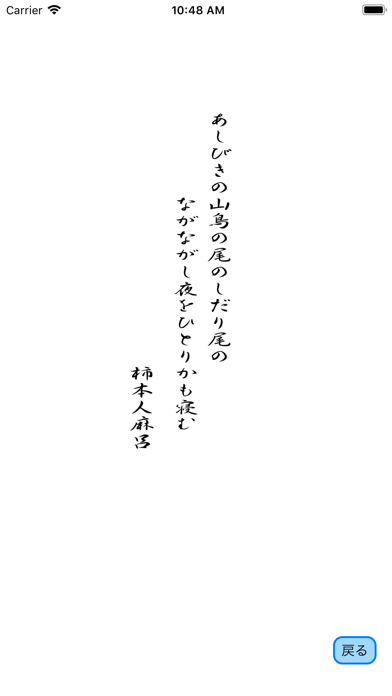 Carrier 10:48 AM
あしびきの山鳥の尾のしだり尾の
ながながし夜をひとりかも寝む
柿本人麻呂
戻る